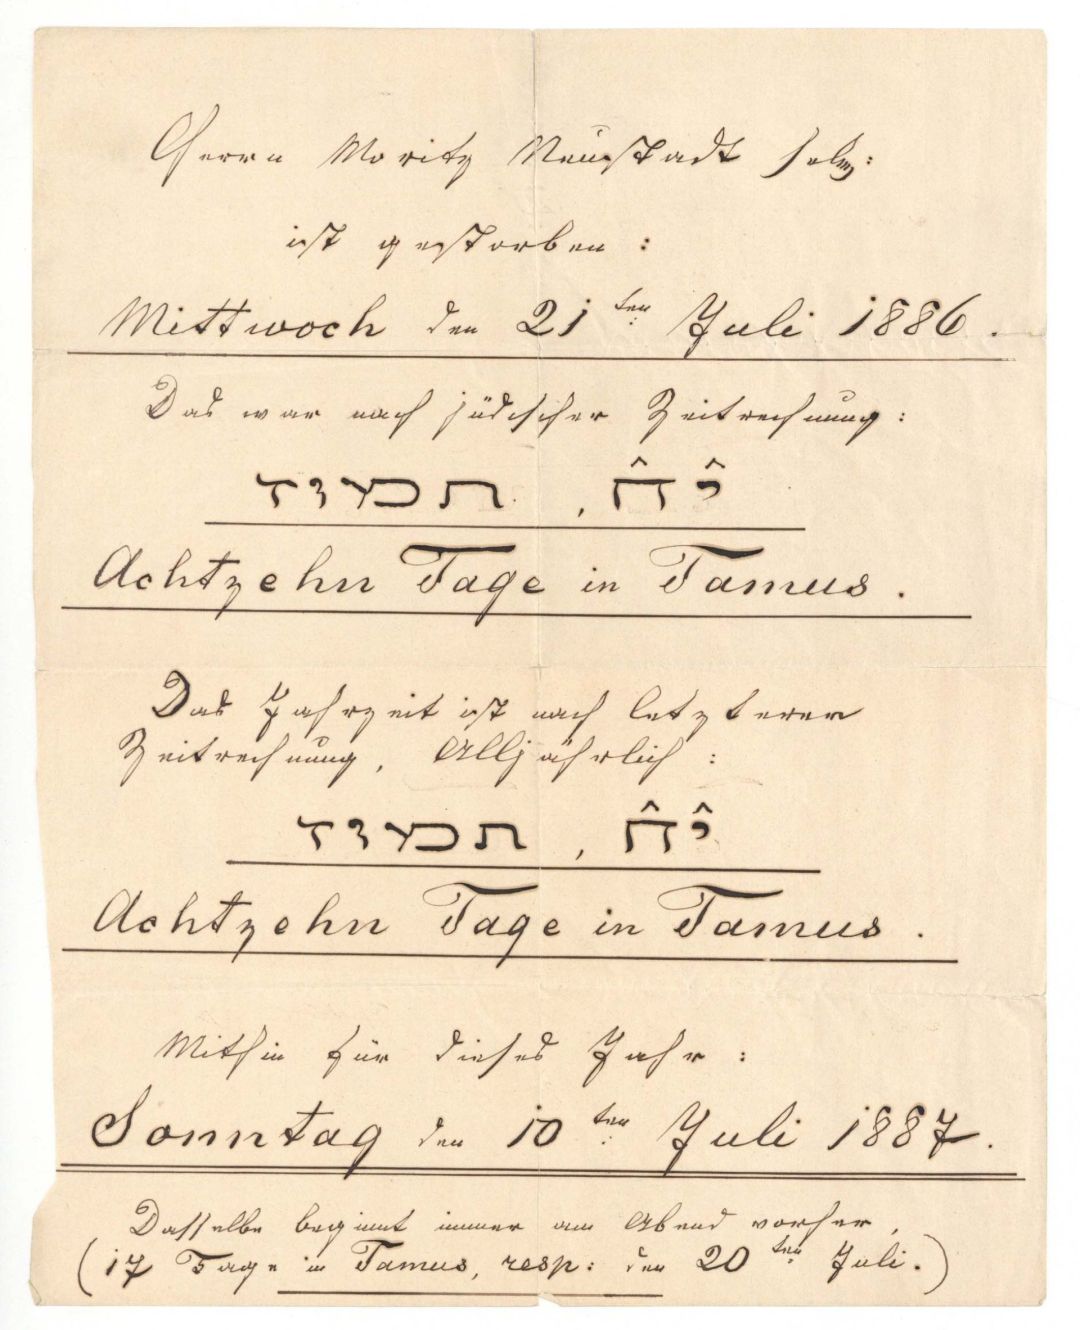 Herrn Moritz Neustadt selg:
ist gestorben :
Mittwoch den 21ten Juli 1886.
Das war nach jüdischer Zeitrechnung :
י̂ח̂, תמוז
Achtzehn Tage in Tamus.
Das Jahrzeit ist nach letzterer
Zeitrechnung, Alljährlich :
י̂ח̂, תמוז
Achtzehn Tage in Tamus.
Mithin für dieses Jahr :
Sonntag den 10ten Juli 1887.
Dasselbe beginnt immer am Abend vorher,
(17 Tage in Tamus, resp: den 20ten Juli.)